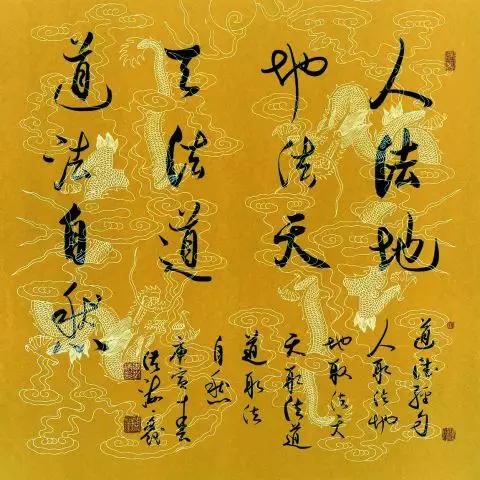 人法地
地法天
天法道
道法自然
道德经句
人取法地
地取法天
天取法道
道取法
自然
庚寅年春